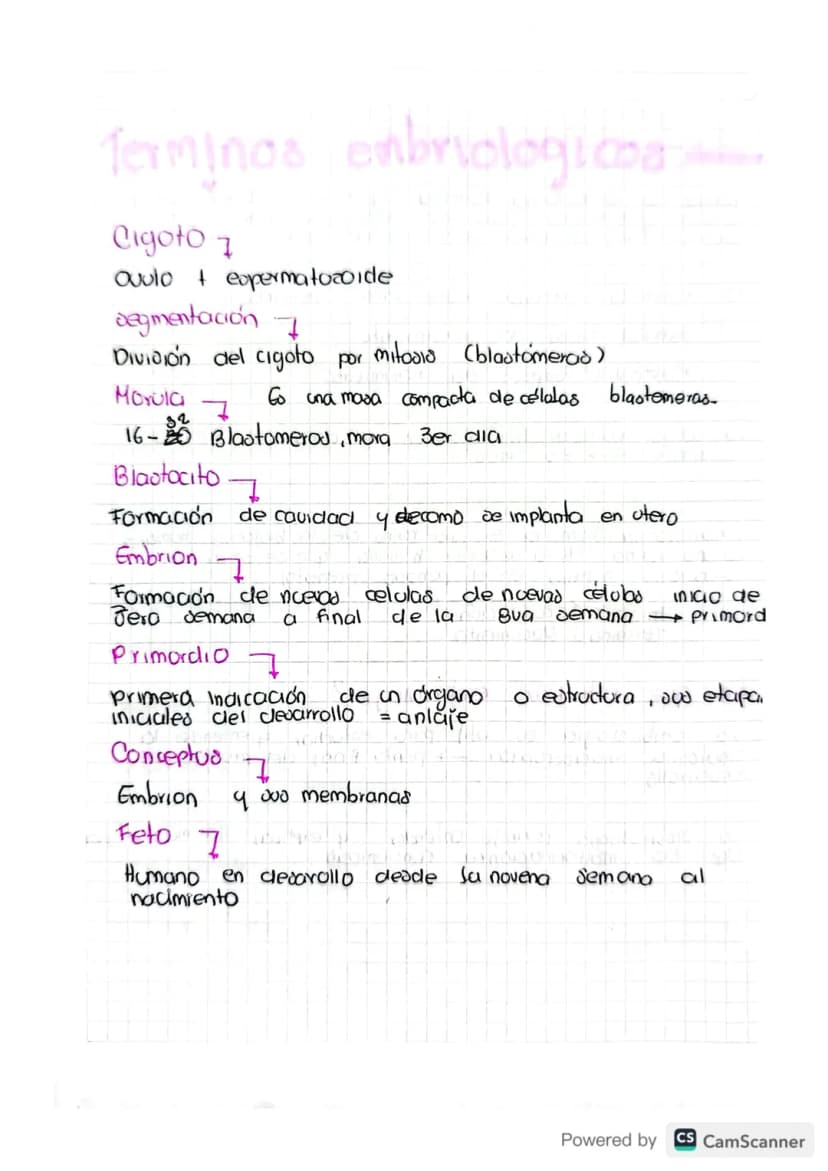 Terminos enbriologicos
Cigoto
ovulo + espermatozoide
segmentación
División del cigoto por mitosis (blastómeros)
Morula Es una masa compacta de células blastomeras.
16-32 Blastomeros, mora 3er dia
Blastocito
Formación de cavidad y decomo se implanta en utero
Embrion
Formación de nuevas celulas de nuevas células inicio de
3era semana a final de la 8va semana → primord
Primordio
primera indicación de un órgano o estructura, sus etapa
iniciales del desarrollo = anlaje
Conceptus
Embrion y sus membranas
Feto
Humano en desarrollo desde su novena semana al
nacimiento
Powered by CS CamScanner